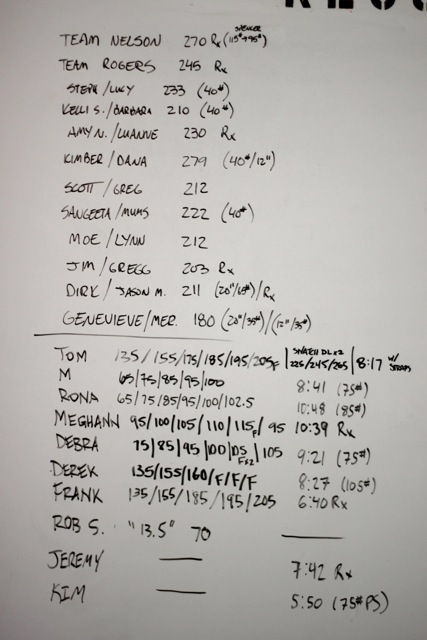 TEAM NELSON 270 Rx (115#→95#) SPENCER
TEAM ROGERS 245 Rx
STEPH/LUCY 233 (40#)
KELLI S./BARBARA 210 (40#)
AMY N./LUANNE 230 Rx
KIMBER/DANA 279 (40#/12")
SCOTT/GREG 212
SANGEETA/MUMS 222 (40#)
MOE/LYNN 212
JIM/GREGG 203 Rx
DIRK/JASON M. 211 (20"/65#)/Rx
GENEVIEVE/MER. 180 (20"/35#)/(12"/35#)
TOM 135/155/175/185/195/205F | SNATCH DL x2 225/245/265 | 8:17 w/ STRAPS
M 65/75/85/95/100 8:41 (75#)
RONA 65/75/85/95/100/102.5 10:48 (85#)
MEGHANN 95/100/105/110/115F/95 10:39 Rx
DEBRA 75/85/95/100/105 Fx2/105 9:21 (75#)
DEREK 135/155/160/F/F/F 8:27 (105#)
FRANK 135/155/185/195/205 6:40 Rx
ROB S. "13.5" 70 —
JEREMY — 7:42 Rx
KIM — 5:50 (75# PS)